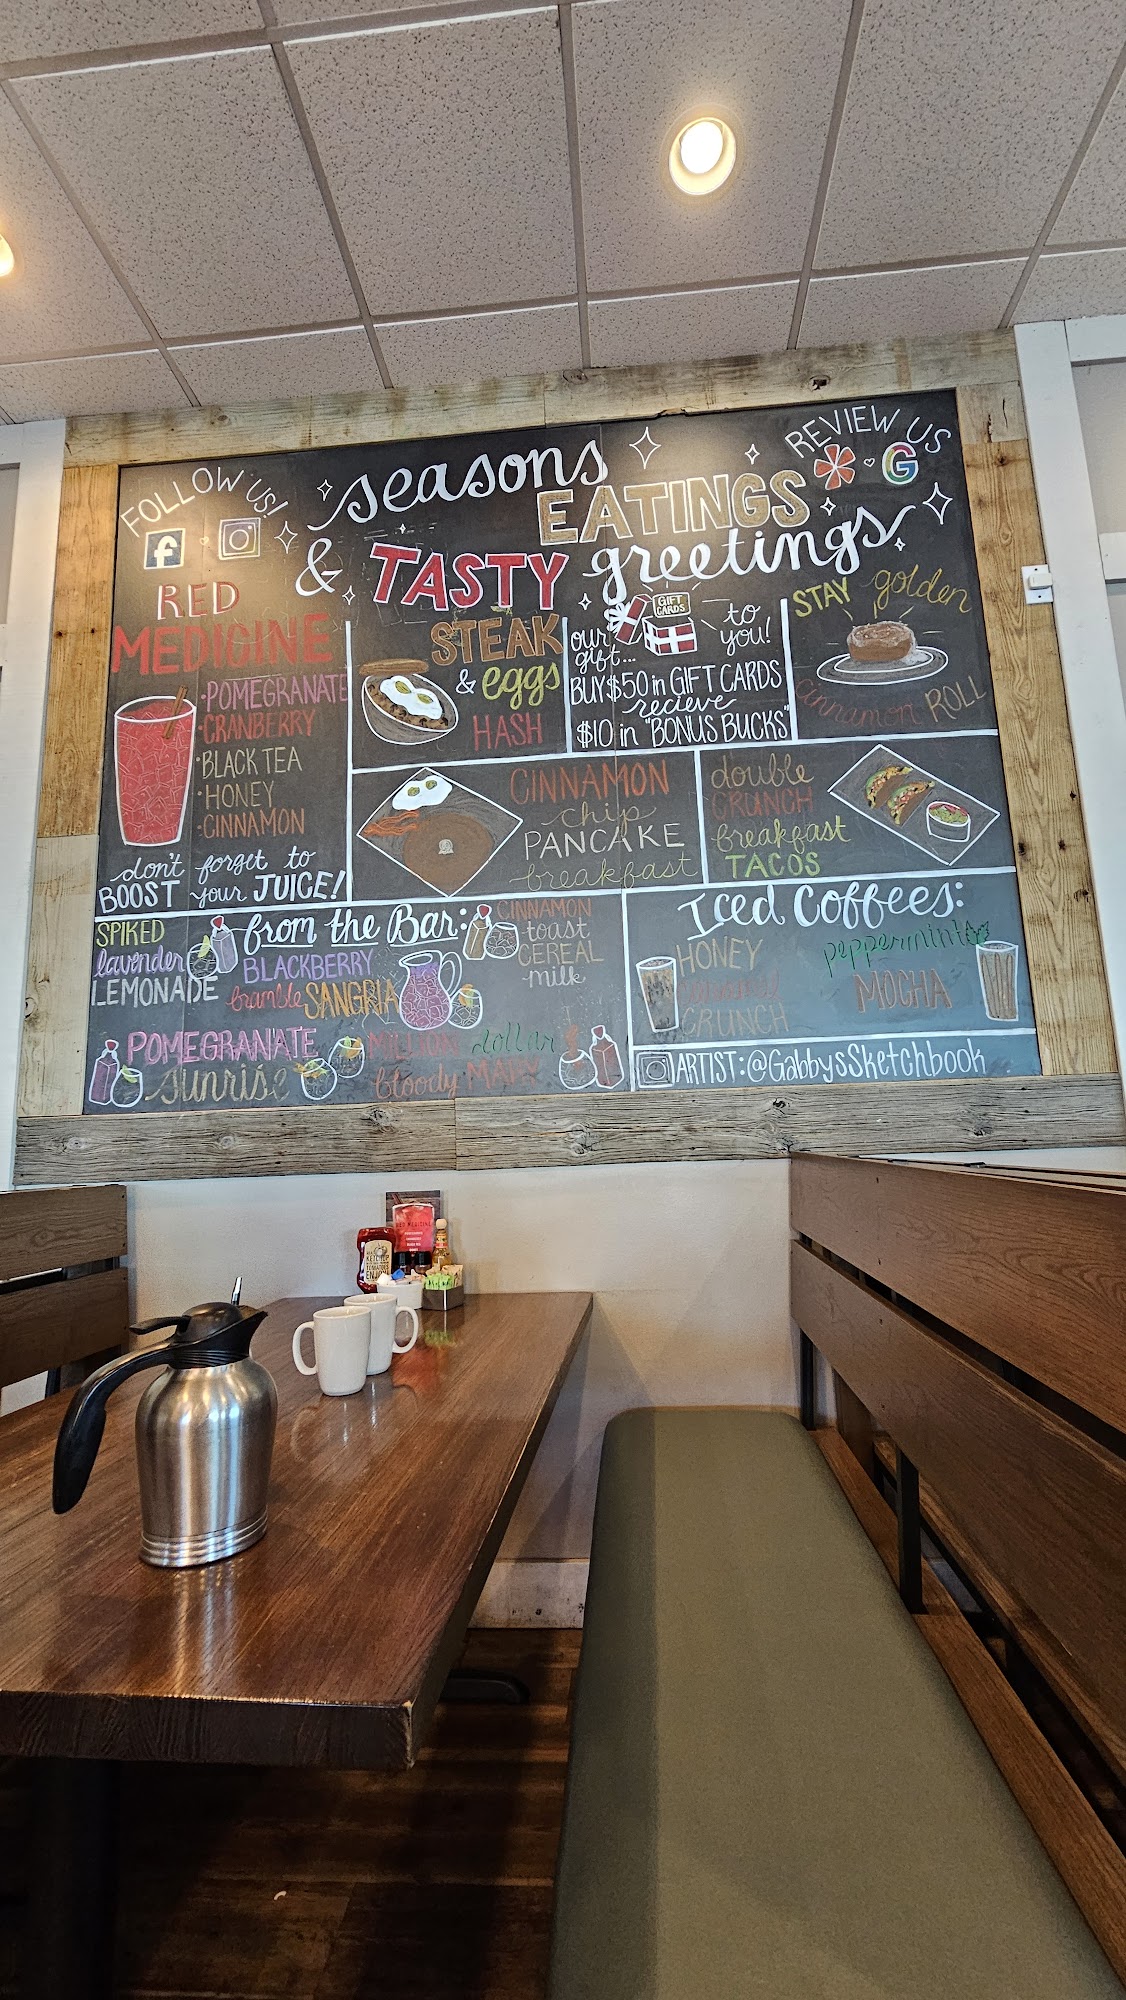 FOLLOW US!
f
seasons
EATINGS
& TASTY greetings
REVIEW US
G
RED
MEDICINE
• POMEGRANATE
• CRANBERRY
• BLACK TEA
• HONEY
• CINNAMON
don't forget to
BOOST your JUICE!
STEAK
& eggs
HASH
GIFT
CARDS
our
gift...
to
you!
BUY $50 in GIFT CARDS
recieve
$10 in "BONUS BUCKS"
STAY golden
cinnamon ROLL
CINNAMON
chip
PANCAKE
breakfast
double
CRUNCH
breakfast
TACOS
from the Bar:
SPIKED
lavender
LEMONADE
BLACKBERRY
bramble SANGRIA
CINNAMON
toast
CEREAL
milk
POMEGRANATE
sunrise
MILLION dollar
bloody MARY
Iced Coffees:
HONEY
CRUNCH
peppermint
MOCHA
ARTIST: @GabbysSketchbook
RED MEDICINE
KETCHUP